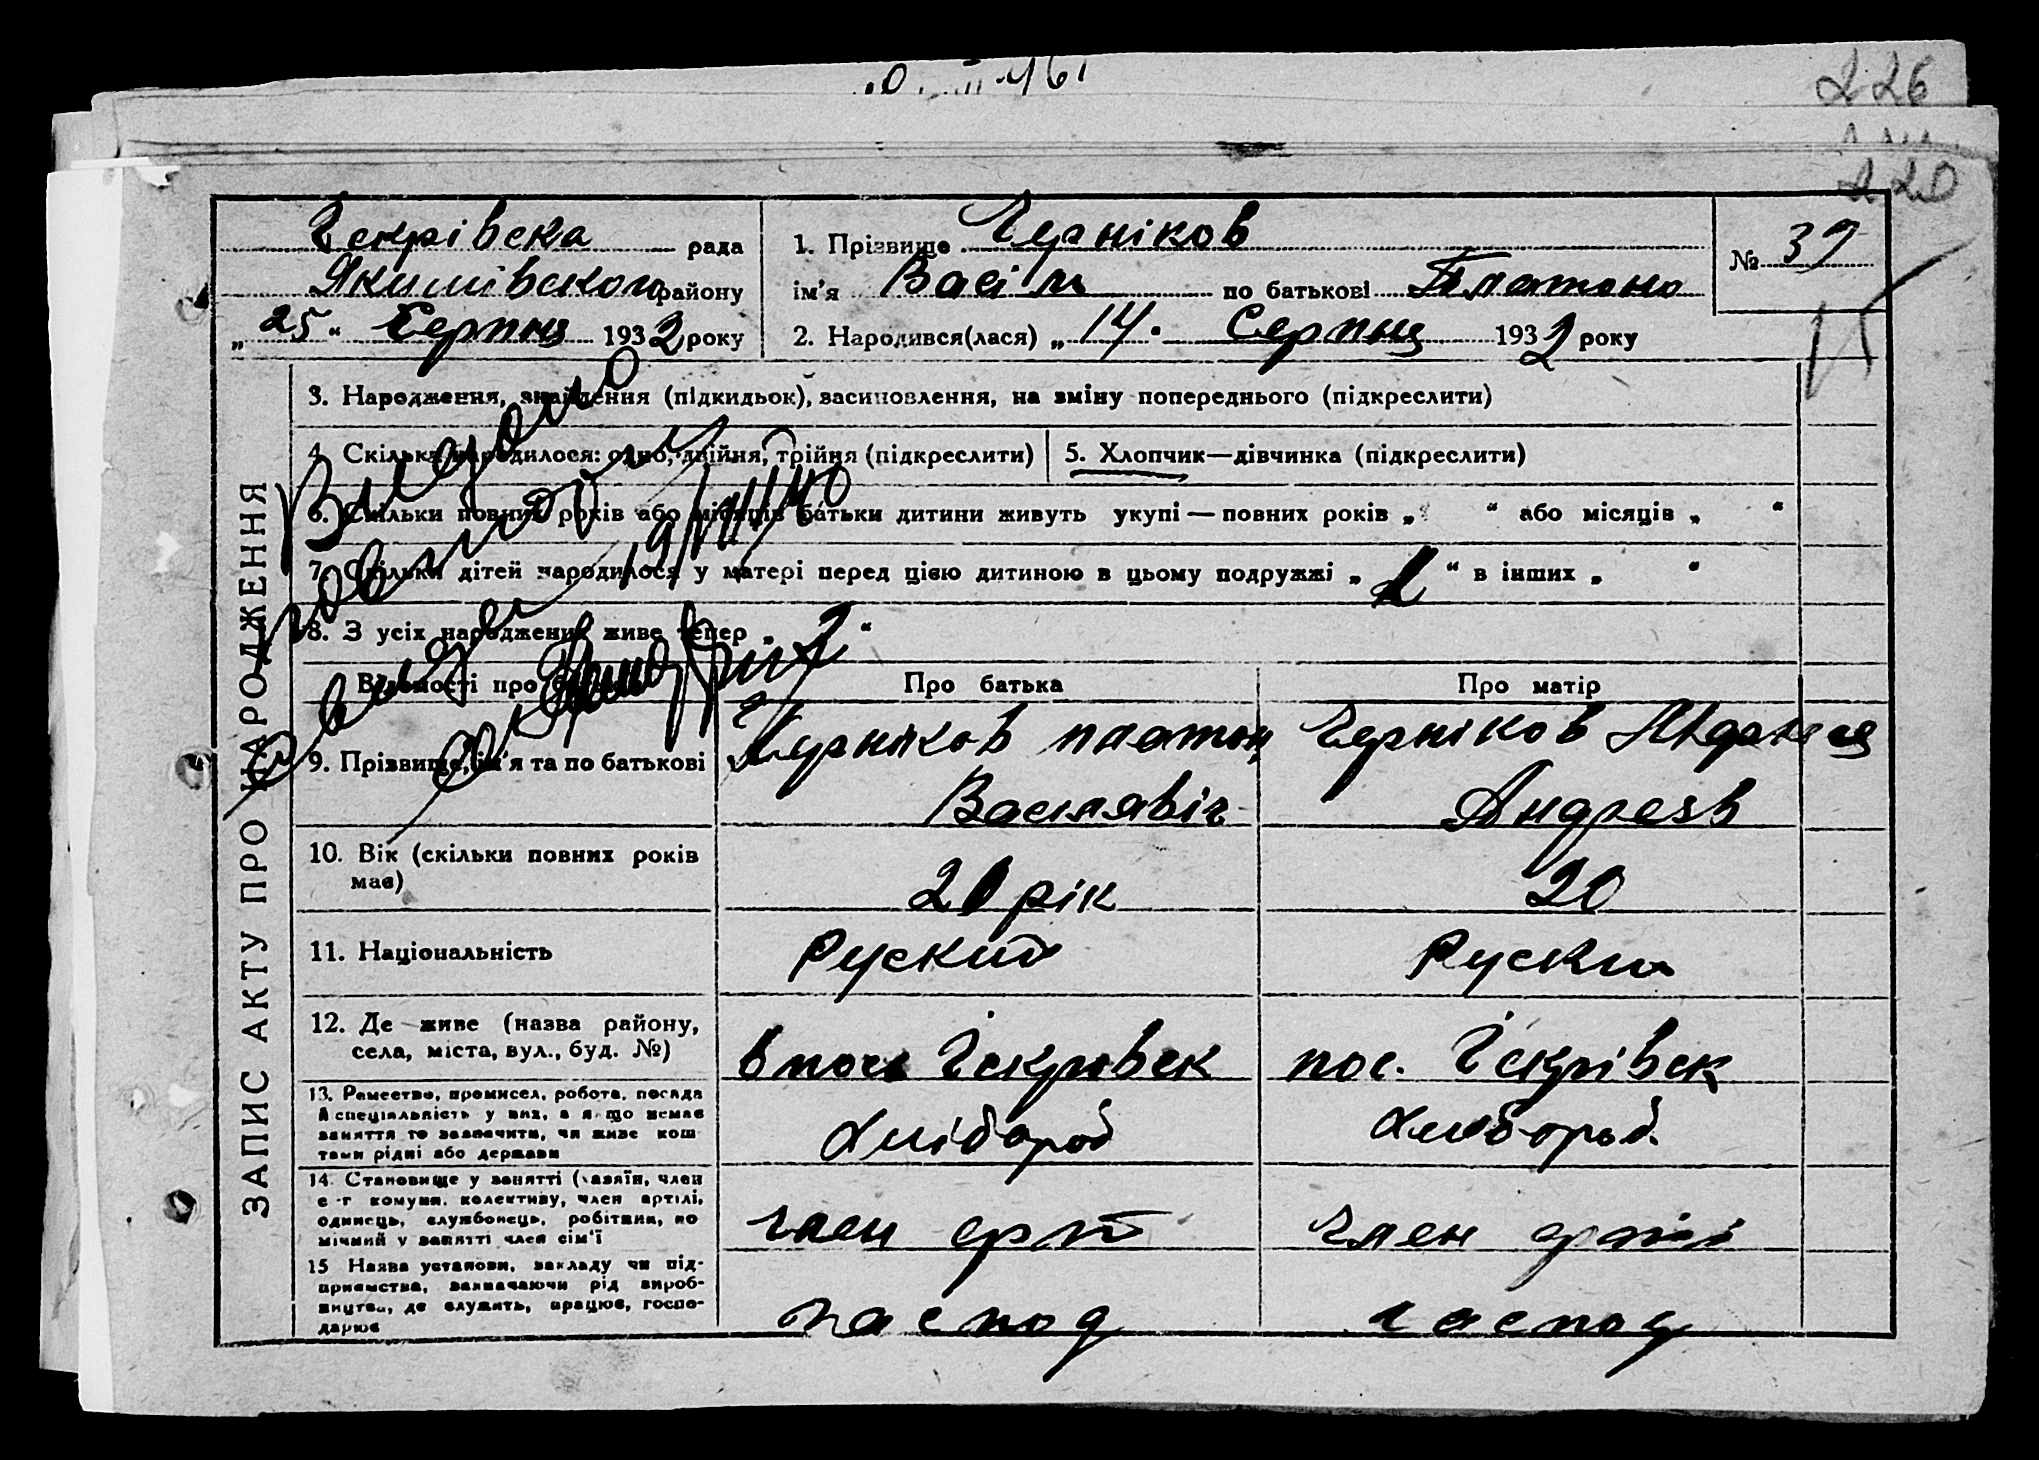 226
220
Іскрівска рада
Якимівского району
„25“ Серпня 1932 року
1. Прізвище Черніков
ім’я Васіль по батькові Платоно
2. Народився(лася) „14. Серпня 1932 року
№ 37
ЗАПИС АКТУ ПРО НАРОДЖЕННЯ
3. Народження, знайдення (підкидьок), засиновлення, на зміну попереднього (підкреслити)
4. Скільки народилося: одно, двійня, трійня (підкреслити)
5. Хлопчик—дівчинка (підкреслити)
6. Скільки повних років або місяців батьки дитини живуть укупі — повних років „ “ або місяців „ “
7. Скільки дітей народилося у матері перед цією дитиною в цьому подружжі „1“ в інших „ “
8. З усіх народжених живе тепер „2“
Видано
19/VIII/40
Відомості про
Про батька
Про матір
9. Прізвище, ім’я та по батькові
Черніков платон
Василявіч
Черніков
Андреєв
10. Вік (скільки повних років
має)
21 рік
20
11. Національність
Руский
Руски
12. Де живе (назва району,
села, міста, вул., буд. №)
в посе Іскрівск
пос. Іскрівск
13. Ремество, промисел, робота, посада
й спеціяльність у них, а якщо немає
заняття то зазначити, чи живе кош
тами рідні або держави
хлібороб
хлібороб.
14. Становище у занятті (хазяїн, член
с-г комуни, колективу, член артілі,
одинець, службовець, робітник, по
мічний у занятті член сім’ї
член ерт
член ертіл
15 Назва установи, закладу чи під-
приємства, зазначаючи рід вироб-
ництва, де служить, працює, госпо-
дарює
господ
господ